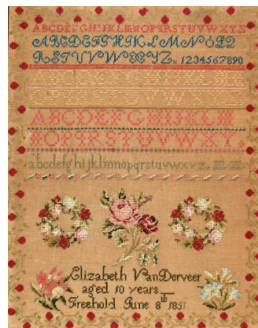 ABCDEFGHIJKLMNOPQRSTUVWXYZ
ABCDEFGHIJKLMNOPQ
RSTUVWXYZ 1234567890
ABCDEFGHIJKLM
NOPQRSTUVWXYZ
abcdefghijklmnopqrstuvwxyz
Elizabeth VanDerveer
aged 10 years
Freehold June 8th 1851